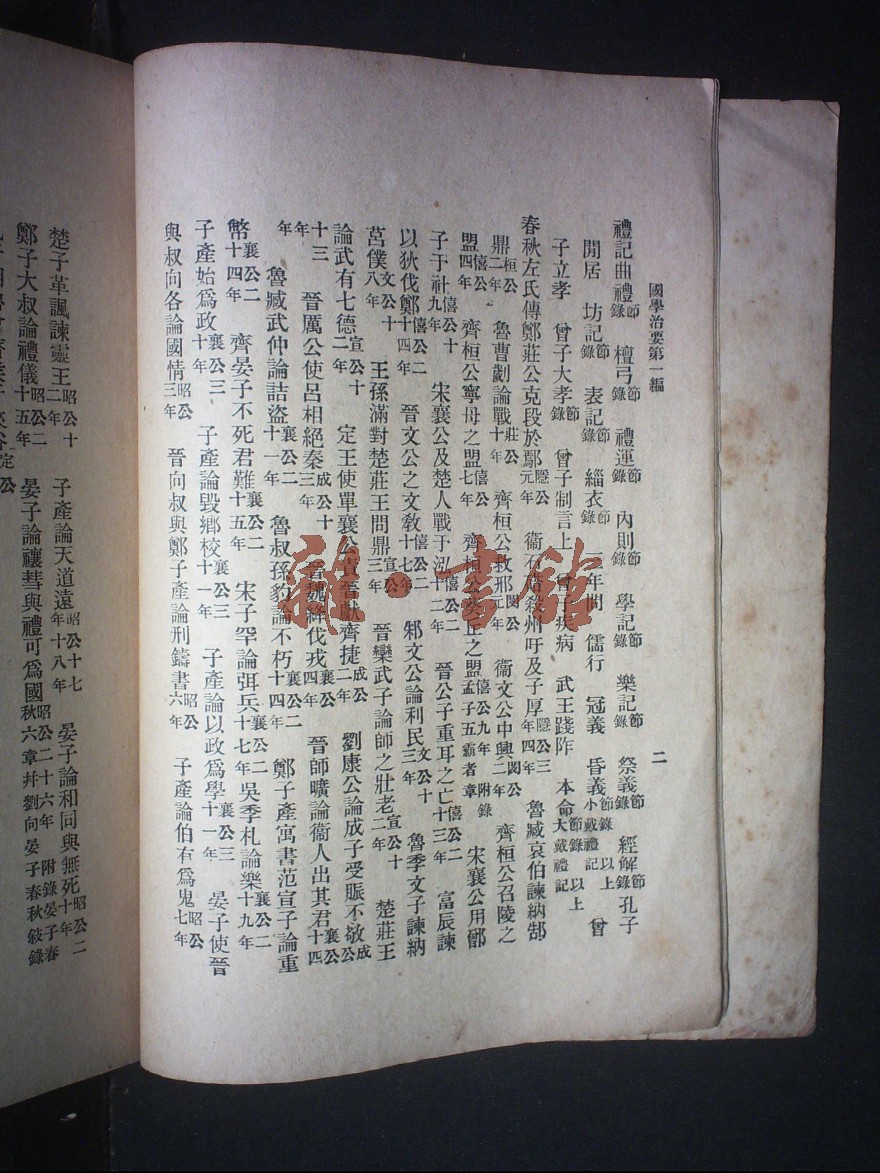 國學治要第一編
二
禮記曲禮節錄 檀弓節錄 禮運節錄 內則節錄 學記節錄 樂記節錄 祭義節錄 經解節錄 孔子
閒居 坊記節錄 表記節錄 緇衣節錄 三年問 儒行 冠義 昏義節錄以上小戴禮記 曾
子立孝 曾子大孝節錄 曾子制言上 曾子疾病 武王踐阼 本命節錄以上大戴禮記
春秋左氏傳鄭莊公克段於鄢隱公元年 衞石碏殺州吁及子厚隱公三年四年 魯臧哀伯諫納郜
鼎桓公二年 魯曹劌論戰莊公十年 齊桓公救邢閔公元年 衞文公中興閔公二年 齊桓公召陵之
盟僖公四年 齊桓公寧母之盟僖公七年 齊桓公葵丘之盟僖公九年附錄孟子五霸者章 宋襄公用鄫
子于社僖公十九年 宋襄公及楚人戰于泓僖公二十二年 晉公子重耳之亡僖公二十三年 富辰諫
以狄伐鄭僖公二十四年 晉文公之文敎僖公二十七年 邾文公論利民文公十三年 魯季文子諫納
莒僕文公十八年 王孫滿對楚莊王問鼎宣公三年 晉欒武子論師之壯老宣公十二年 楚莊王
論武有七德宣公十二年 定王使單襄公責晉獻齊捷成公二年 劉康公論成子受脤不敬成公
十三年 晉厲公使呂相絕秦成公十三年 晉魏絳伐戎襄公四年 晉師曠論衞人出其君襄公十四
年 魯臧武仲論詰盜襄公二十一年 魯叔孫豹論不朽襄公二十四年 鄭子產寓書范宣子論重
幣襄公二十四年 齊晏子不死君難襄公二十五年 宋子罕論弭兵襄公二十七年 吳季札論樂襄公二十九年
子產始爲政襄公三十年 子產論毀鄉校襄公三十一年 子產論以政爲學襄公三十一年 晏子使晉
與叔向各論國情昭公三年 晉向叔與鄭子產論刑鑄書昭公六年 子產論伯有爲鬼昭公七年
楚子革諷諫靈王昭公十二年 子產論天道遠昭公十七年十八年 晏子論和同與無死昭公二十年
鄭子大叔論禮儀昭公二十五年 晏子論禳彗與禮可爲國昭公二十六年附錄晏子春秋六章幷劉向晏子春秋敍錄
定公
雜·書館